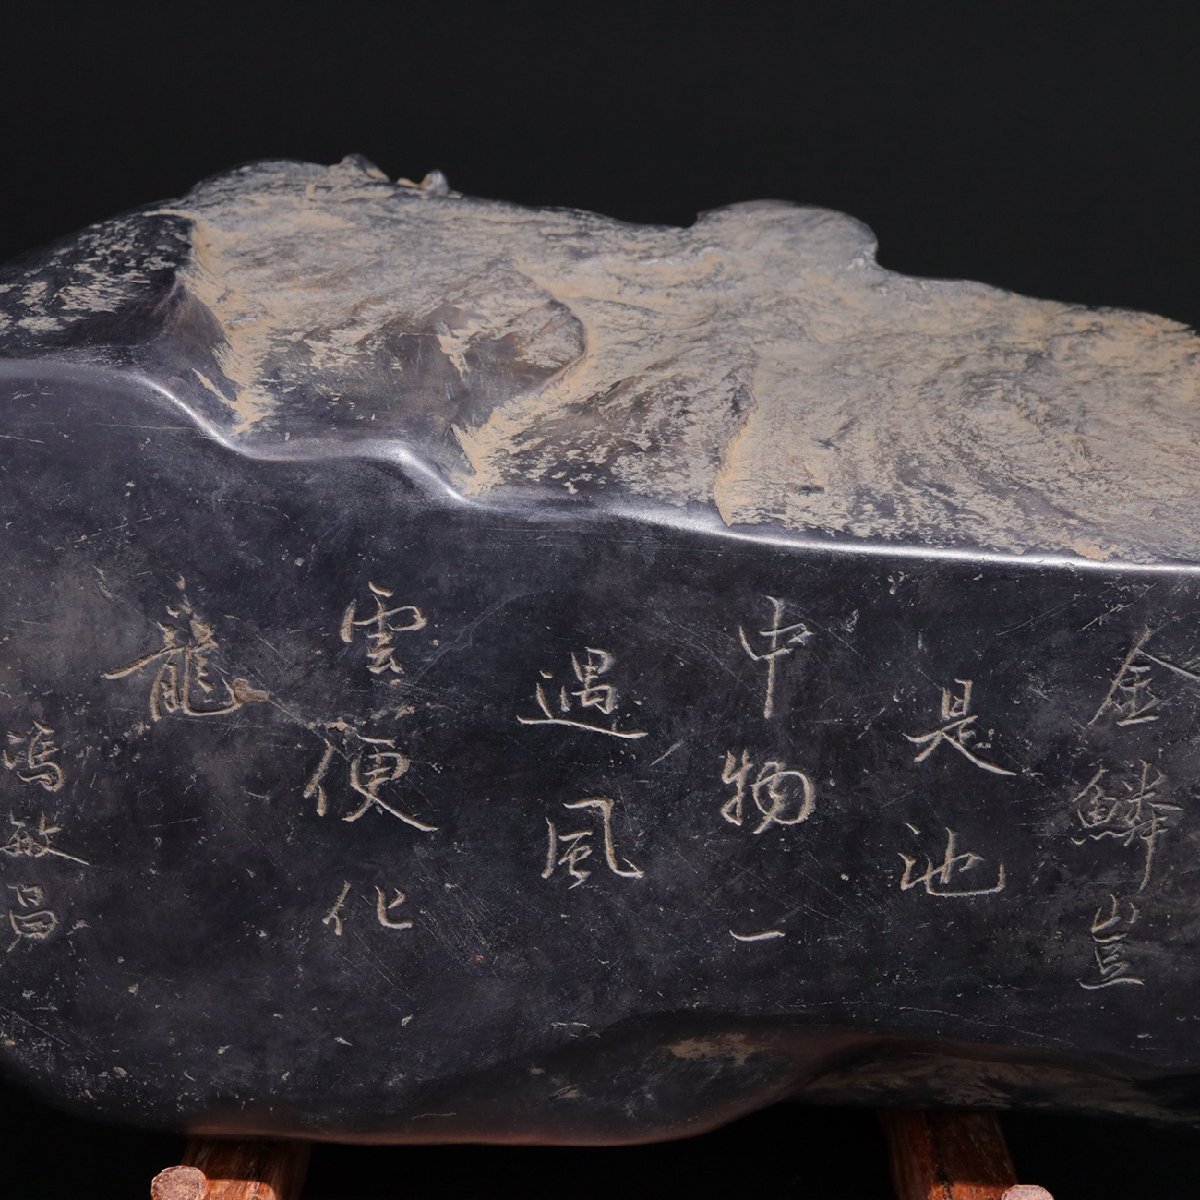 金鱗豈
是池
中物一
遇風
雲便化
龍
馮敏昌